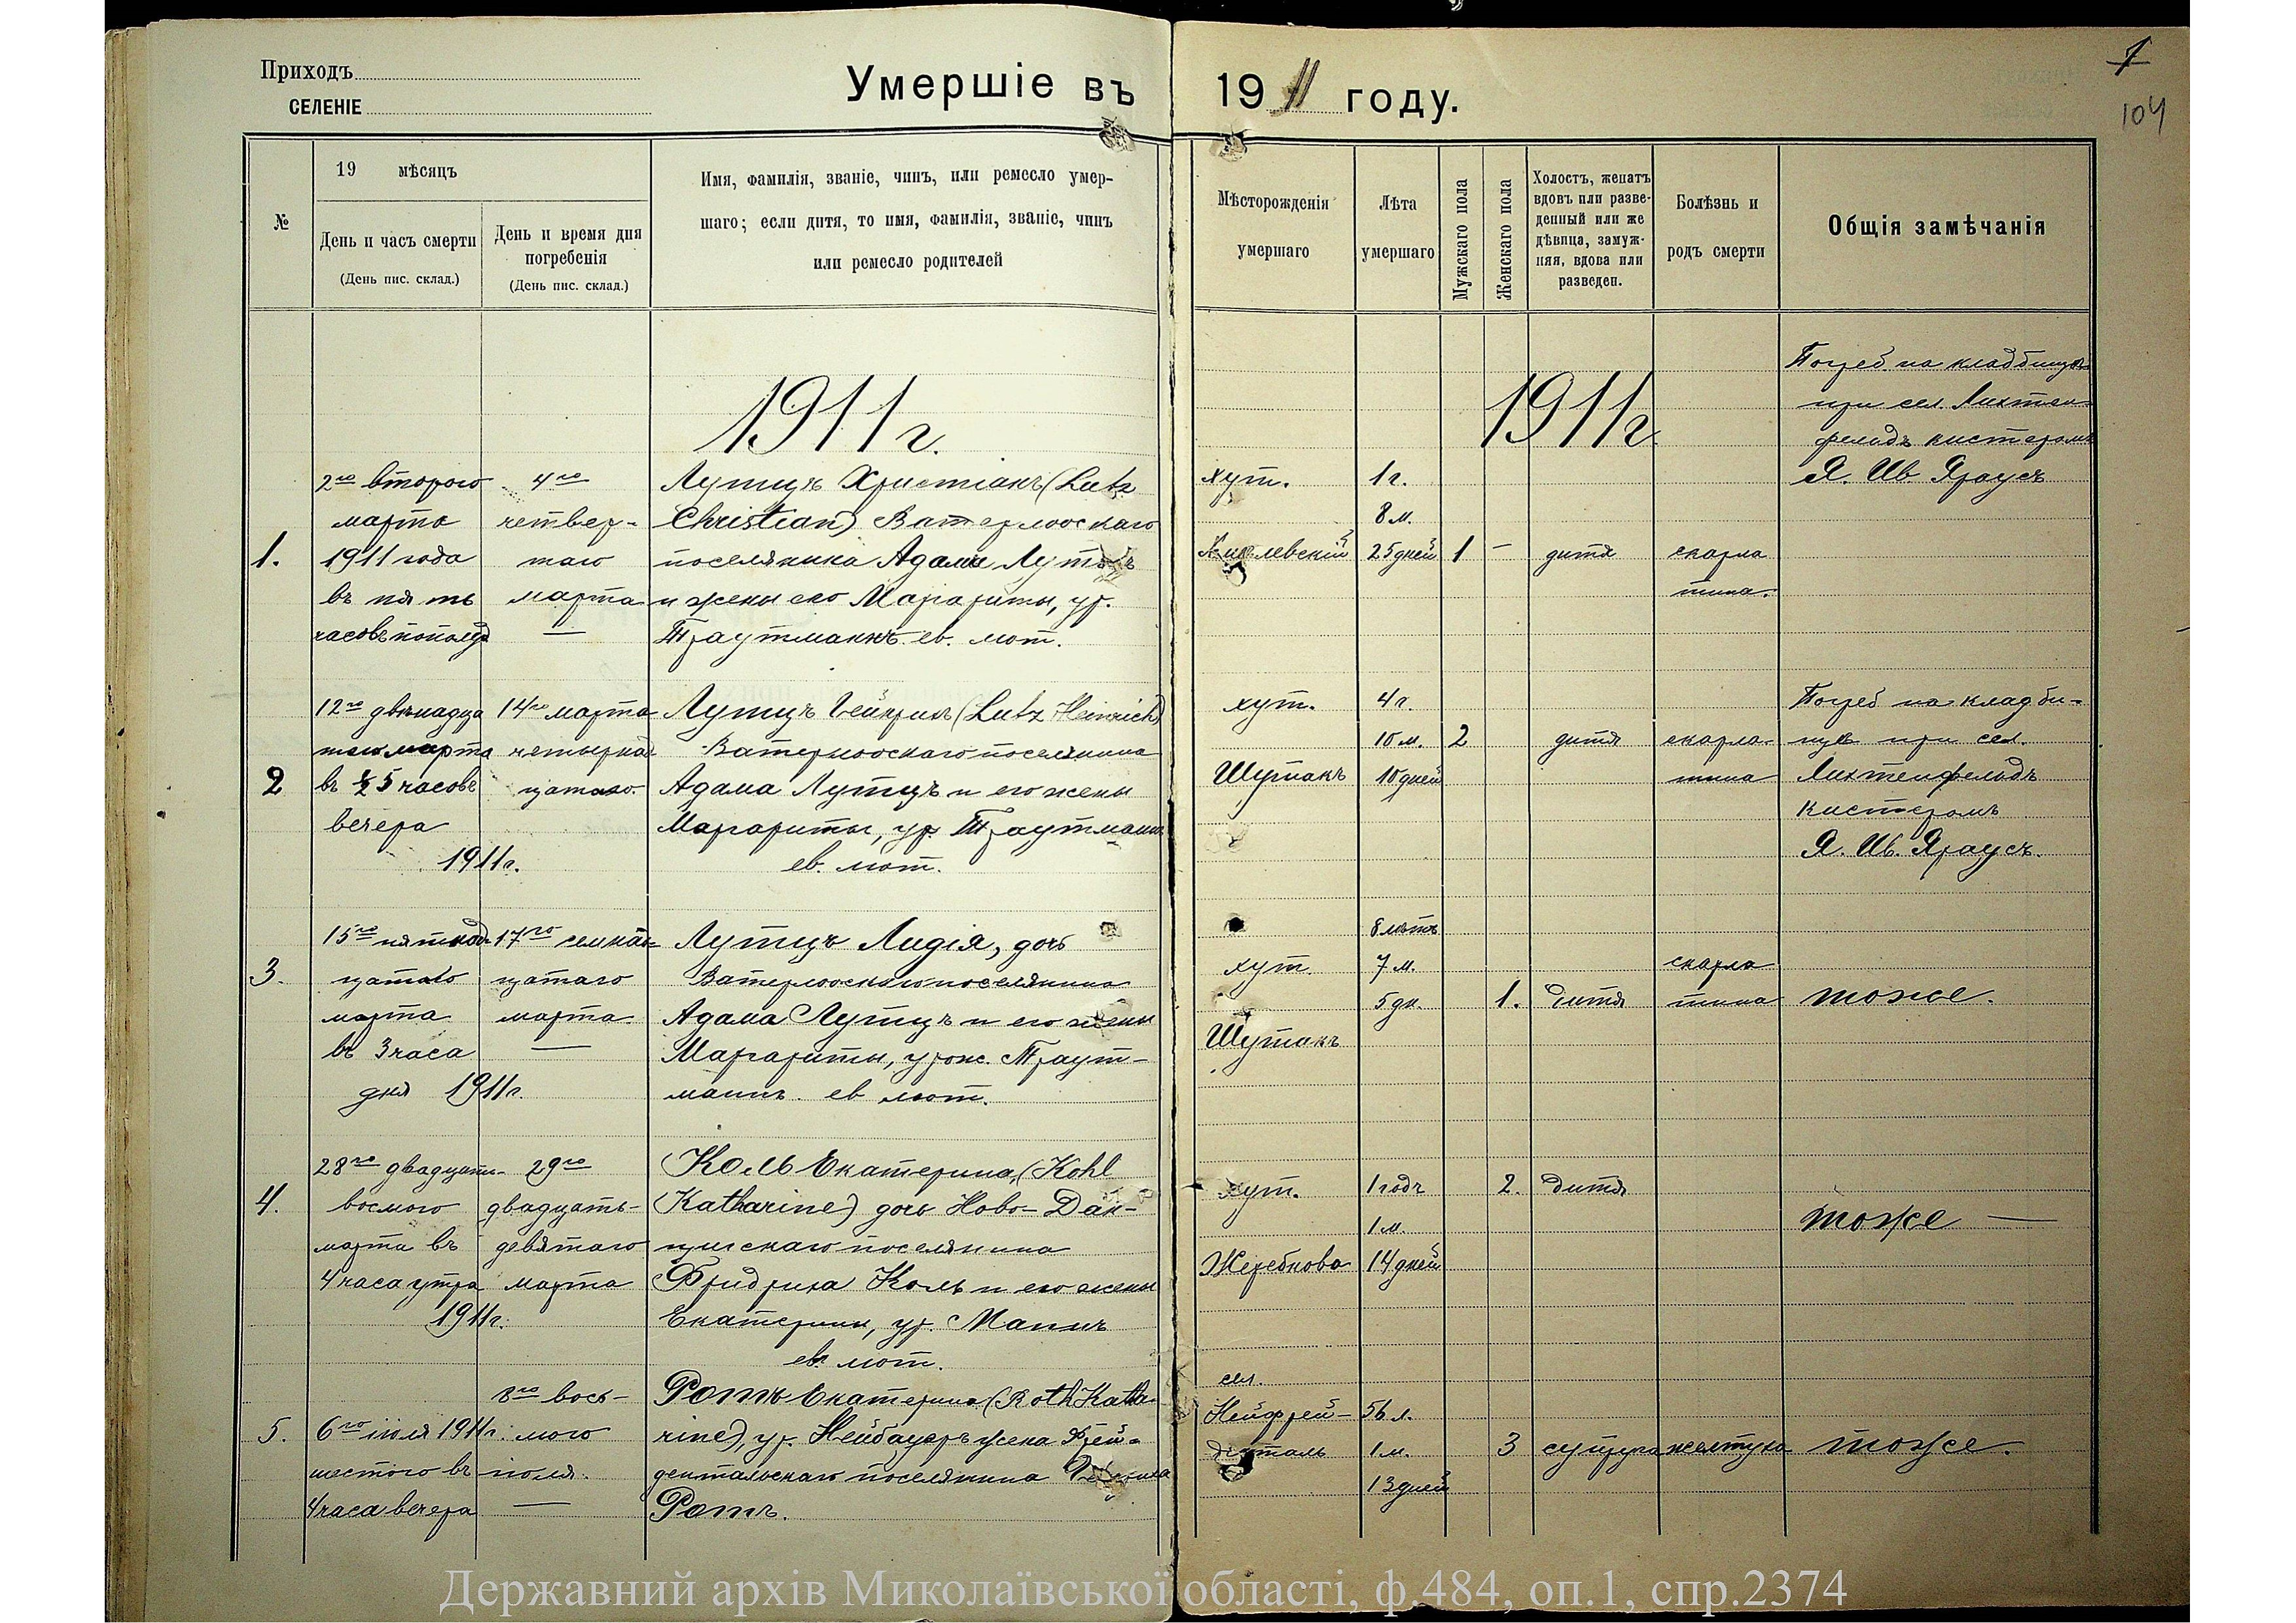 Приходъ
СЕЛЕНІЕ
Умершіе въ 1911 году.
7
104
№
19 мѣсяцъ
День и часъ смерти
(День пис. склад.)
День и время дня
погребенія
(День пис. склад.)
Имя, фамилія, званіе, чинъ, или ремесло умер-
шаго; если дитя, то имя, фамилія, званіе, чинъ
или ремесло родителей
Мѣсторожденія
умершаго
Лѣта
умершаго
Мужскаго пола
Женскаго пола
Холостъ, женатъ
вдовъ или разве-
денный или же
дѣвица, замуж-
няя, вдова или
разведен.
Болѣзнь и
родъ смерти
Общія замѣчанія
1911 г.
1911 г
1.
2го второго
марта
1911 года
въ пять
часовъ пополуд
4го
четвер-
таго
марта
—
Лутцъ Христіанъ (Lutz
Christian) Ватерлооскаго
поселянина Адама Лутцъ
и жены его Маргариты, ур.
Траутманнъ. ев. лют.
хут.
1 г.
8 м.
25 дней
1
—
дитя
скарла
тина.
Погреб. на кладбищѣ
при сел. Лихтен-
фельдъ кистеромъ
Я. Ив. Яраусъ
2
12го двѣнадца
таго марта
въ ½ 5 часовъ
вечера
1911 г.
14го марта
четырнад
цатаго.
Лутцъ Гейнрихъ (Lutz Heinrich)
Ватерлооскаго поселянина
Адама Лутцъ и его жены
Маргариты, ур. Траутманнъ
ев. лют.
хут.
Шутакъ
4 г.
10 м.
10 дней
2
дитя
скарла-
тина
Погреб на кладби-
щѣ при сел.
Лихтенфельдъ
кистеромъ
Я. Ив. Яраусъ.
3.
15го пятнад-
цатаго
марта
въ 3 часа
дня 1911 г.
17го семнад-
цатаго
марта.
—
Лутцъ Лидія, дочь
Ватерлооскаго поселянина
Адама Лутцъ и его жены
Маргариты, урож. Траут-
маннъ. ев лют.
хут.
Шутакъ
8 лѣтъ
7 м.
5 дн.
1.
дитя
скарла
тина
тоже.
4.
28го двадцати-
восмого
марта въ
4 часа утра
1911 г.
29го
двадцать-
девятаго
марта
Коль Екатерина, (Kohl
Katharine) дочь Ново-Дан-
цигскаго поселянина
Фридриха Коль и его жены
Екатерины, ур. Маннъ
ев. лют.
хут.
Жеребкова
1 годъ
1 м.
14 дней
2.
дитя
тоже —
5.
6го іюля 1911 г.
шестого въ
4 часа вечера
8го вось-
мого
іюля.
—
Ротъ Екатерина (Roth Katha-
rine), ур. Нейбауеръ жена Фрей-
дентальскаго поселянина
Ротъ.
сел.
Нейфрей-
денталь
56 л.
1 м.
13 дней
3
супруга
желтуха
тоже.
Державний архів Миколаївської області, ф.484, оп.1, спр.2374